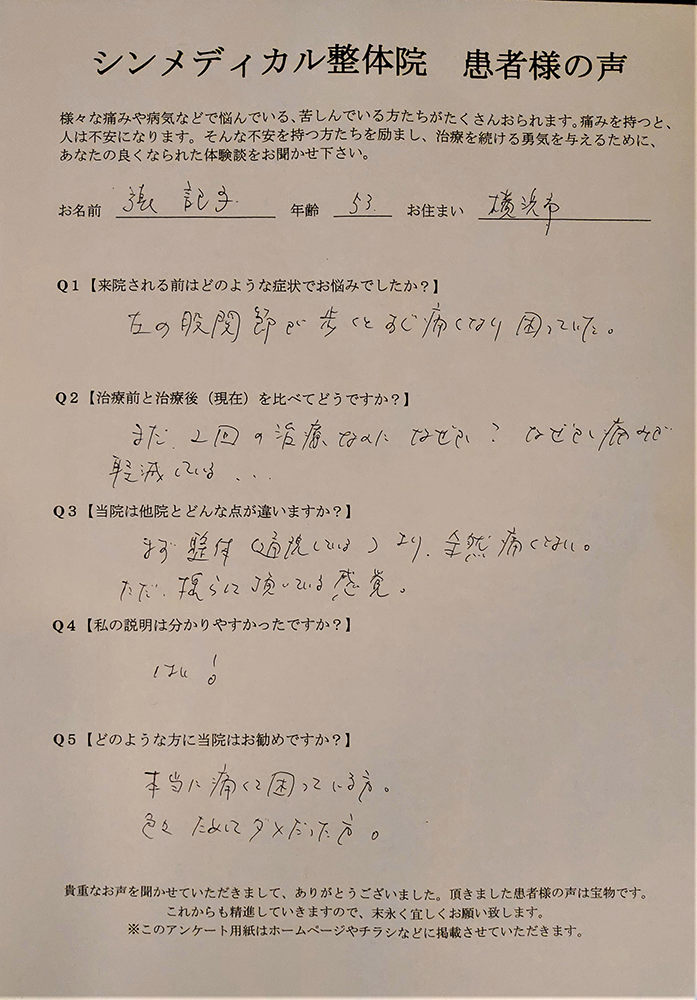 シンメディカル整体院　患者様の声
様々な痛みや病気などで悩んでいる、苦しんでいる方たちがたくさんおられます。痛みを持つと、
人は不安になります。そんな不安を持つ方たちを励まし、治療を続ける勇気を与えるために、
あなたの良くなられた体験談をお聞かせ下さい。
お名前 張 記子 年齢 53 お住まい 横浜市
Q1【来院される前はどのような症状でお悩みでしたか？】
左の股関節が歩くとすぐ痛くなり困っていた。
Q2【治療前と治療後（現在）を比べてどうですか？】
まだ、2回の治療なのに なぜか？ なぜか痛みが
軽減している...
Q3【当院は他院とどんな点が違いますか？】
まず整体（通院している）より、全然痛くない。
ただ、揺らして頂いている感覚。
Q4【私の説明は分かりやすかったですか？】
はい！
Q5【どのような方に当院はお勧めですか？】
本当に痛くて困っている方。
色々ためしてダメだった方。
貴重なお声を聞かせていただきまして、ありがとうございました。頂きました患者様の声は宝物です。
これからも精進していきますので、末永く宜しくお願い致します。
※このアンケート用紙はホームページやチラシなどに掲載させていただきます。